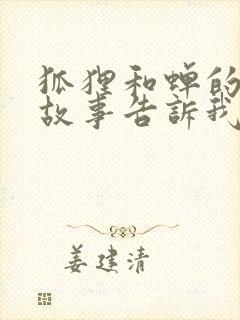 狐狸和蝉的
故事告訴我
姜建清